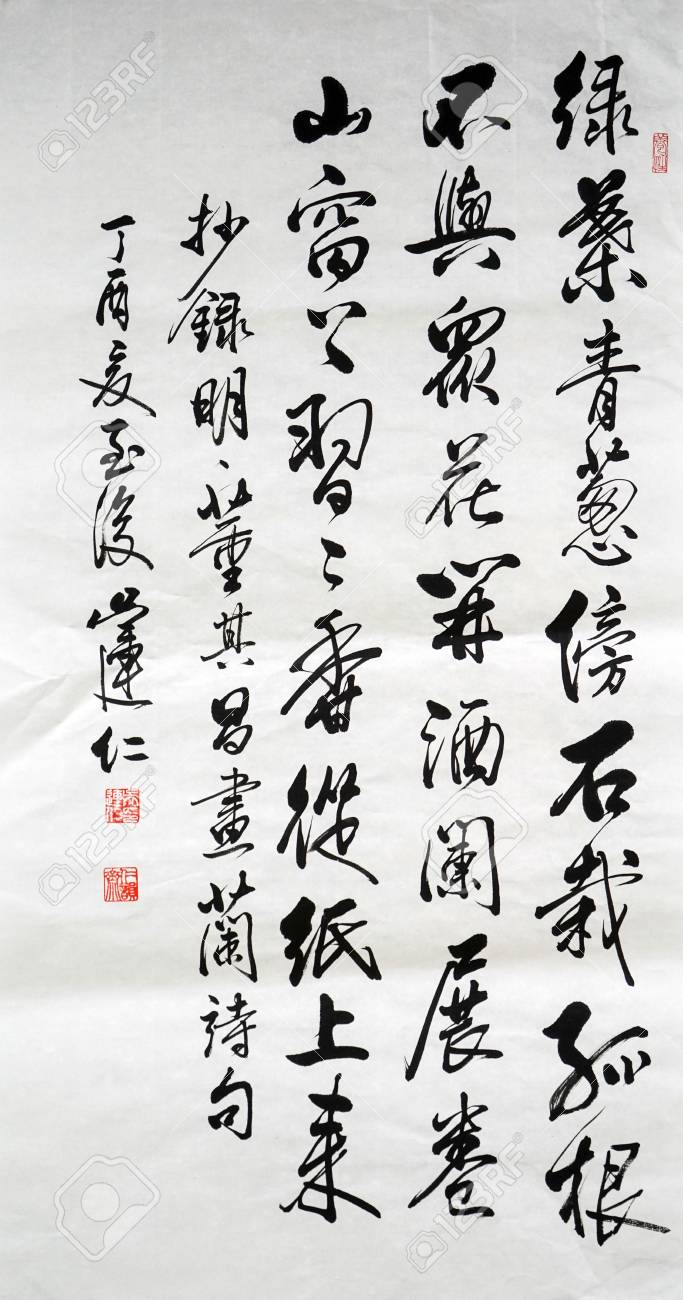 緑葉青葱傍石栽孤根
不與眾花開酒闌展卷
山窗下習〻香從紙上來
抄録明、董其昌畫蘭詩句
丁酉夏至後 仁
123RF